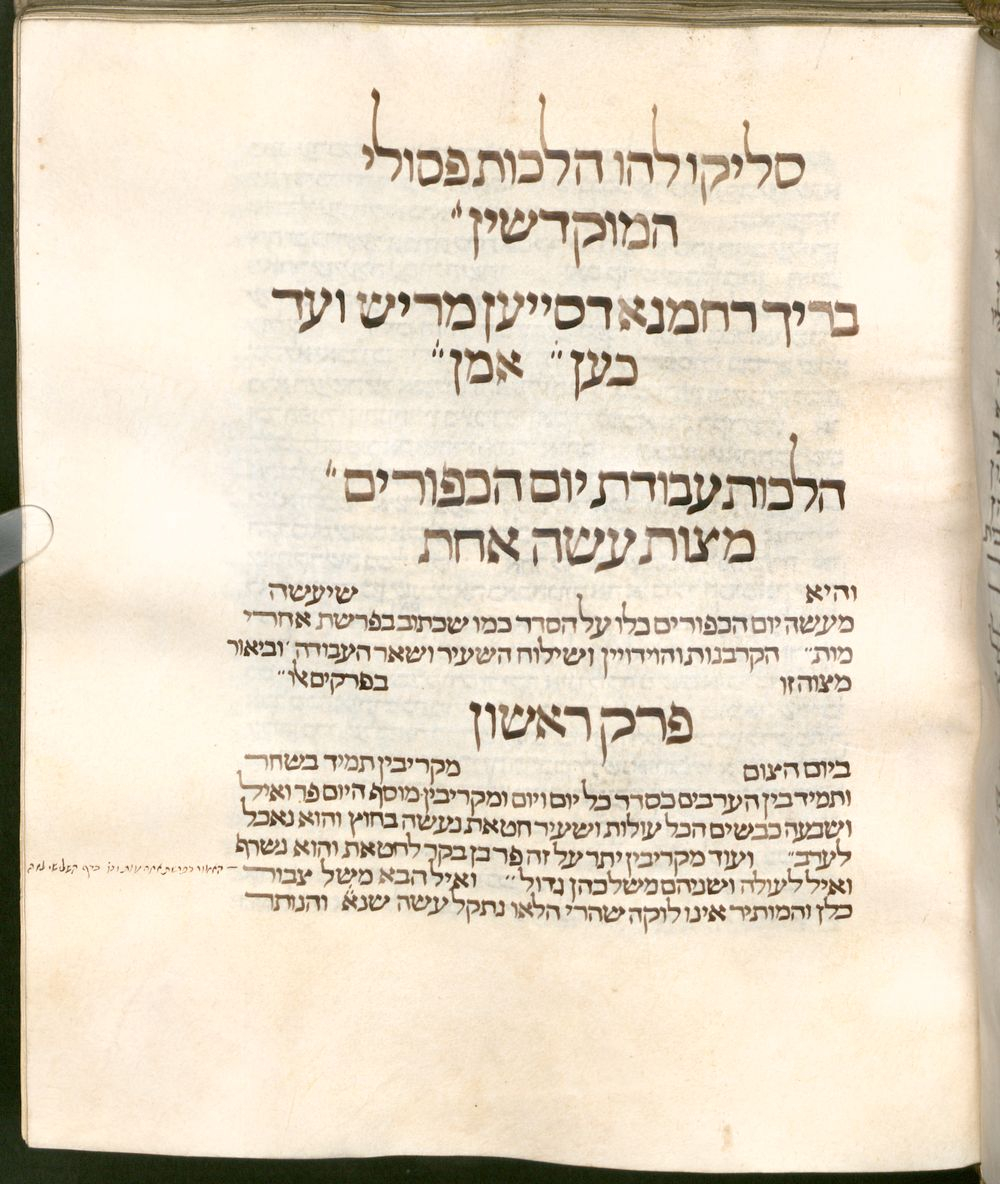 סליקו להו הלכות פסולי
המוקדשין״
בריך רחמנא דסייען מריש ועד
כען״ אמן״
הלכות עבודת יום הכפורים״
מצות עשה אחת
והיא שיעשה
מעשה יום הכפורים כלו על הסדר כמו שכתוב בפרשת אחרי
מות״ הקרבנות והוידויין ושילוח השעיר ושאר העבודה ׳ וביאור
מצוה זו בפרקים אלו״
פרק ראשון
ביום הצום מקריבין תמיד בשחר
ותמיד בין הערבים כסדר כל יום ויום ומקריבין מוסף היום פר ואיל
ושבעה כבשים הכל עולות ושעיר חטאת נעשה בחוץ והוא נאכל
לערב״ ועוד מקריבין יתר על זה פר בן בקר לחטאת והוא נשרף
ואיל לעולה ושניהם משל כהן גדול״ ואיל הבא משל צבור
כלן והמותיר אינו לוקה שהרי הלאו נתקל עשה שנא והנותר